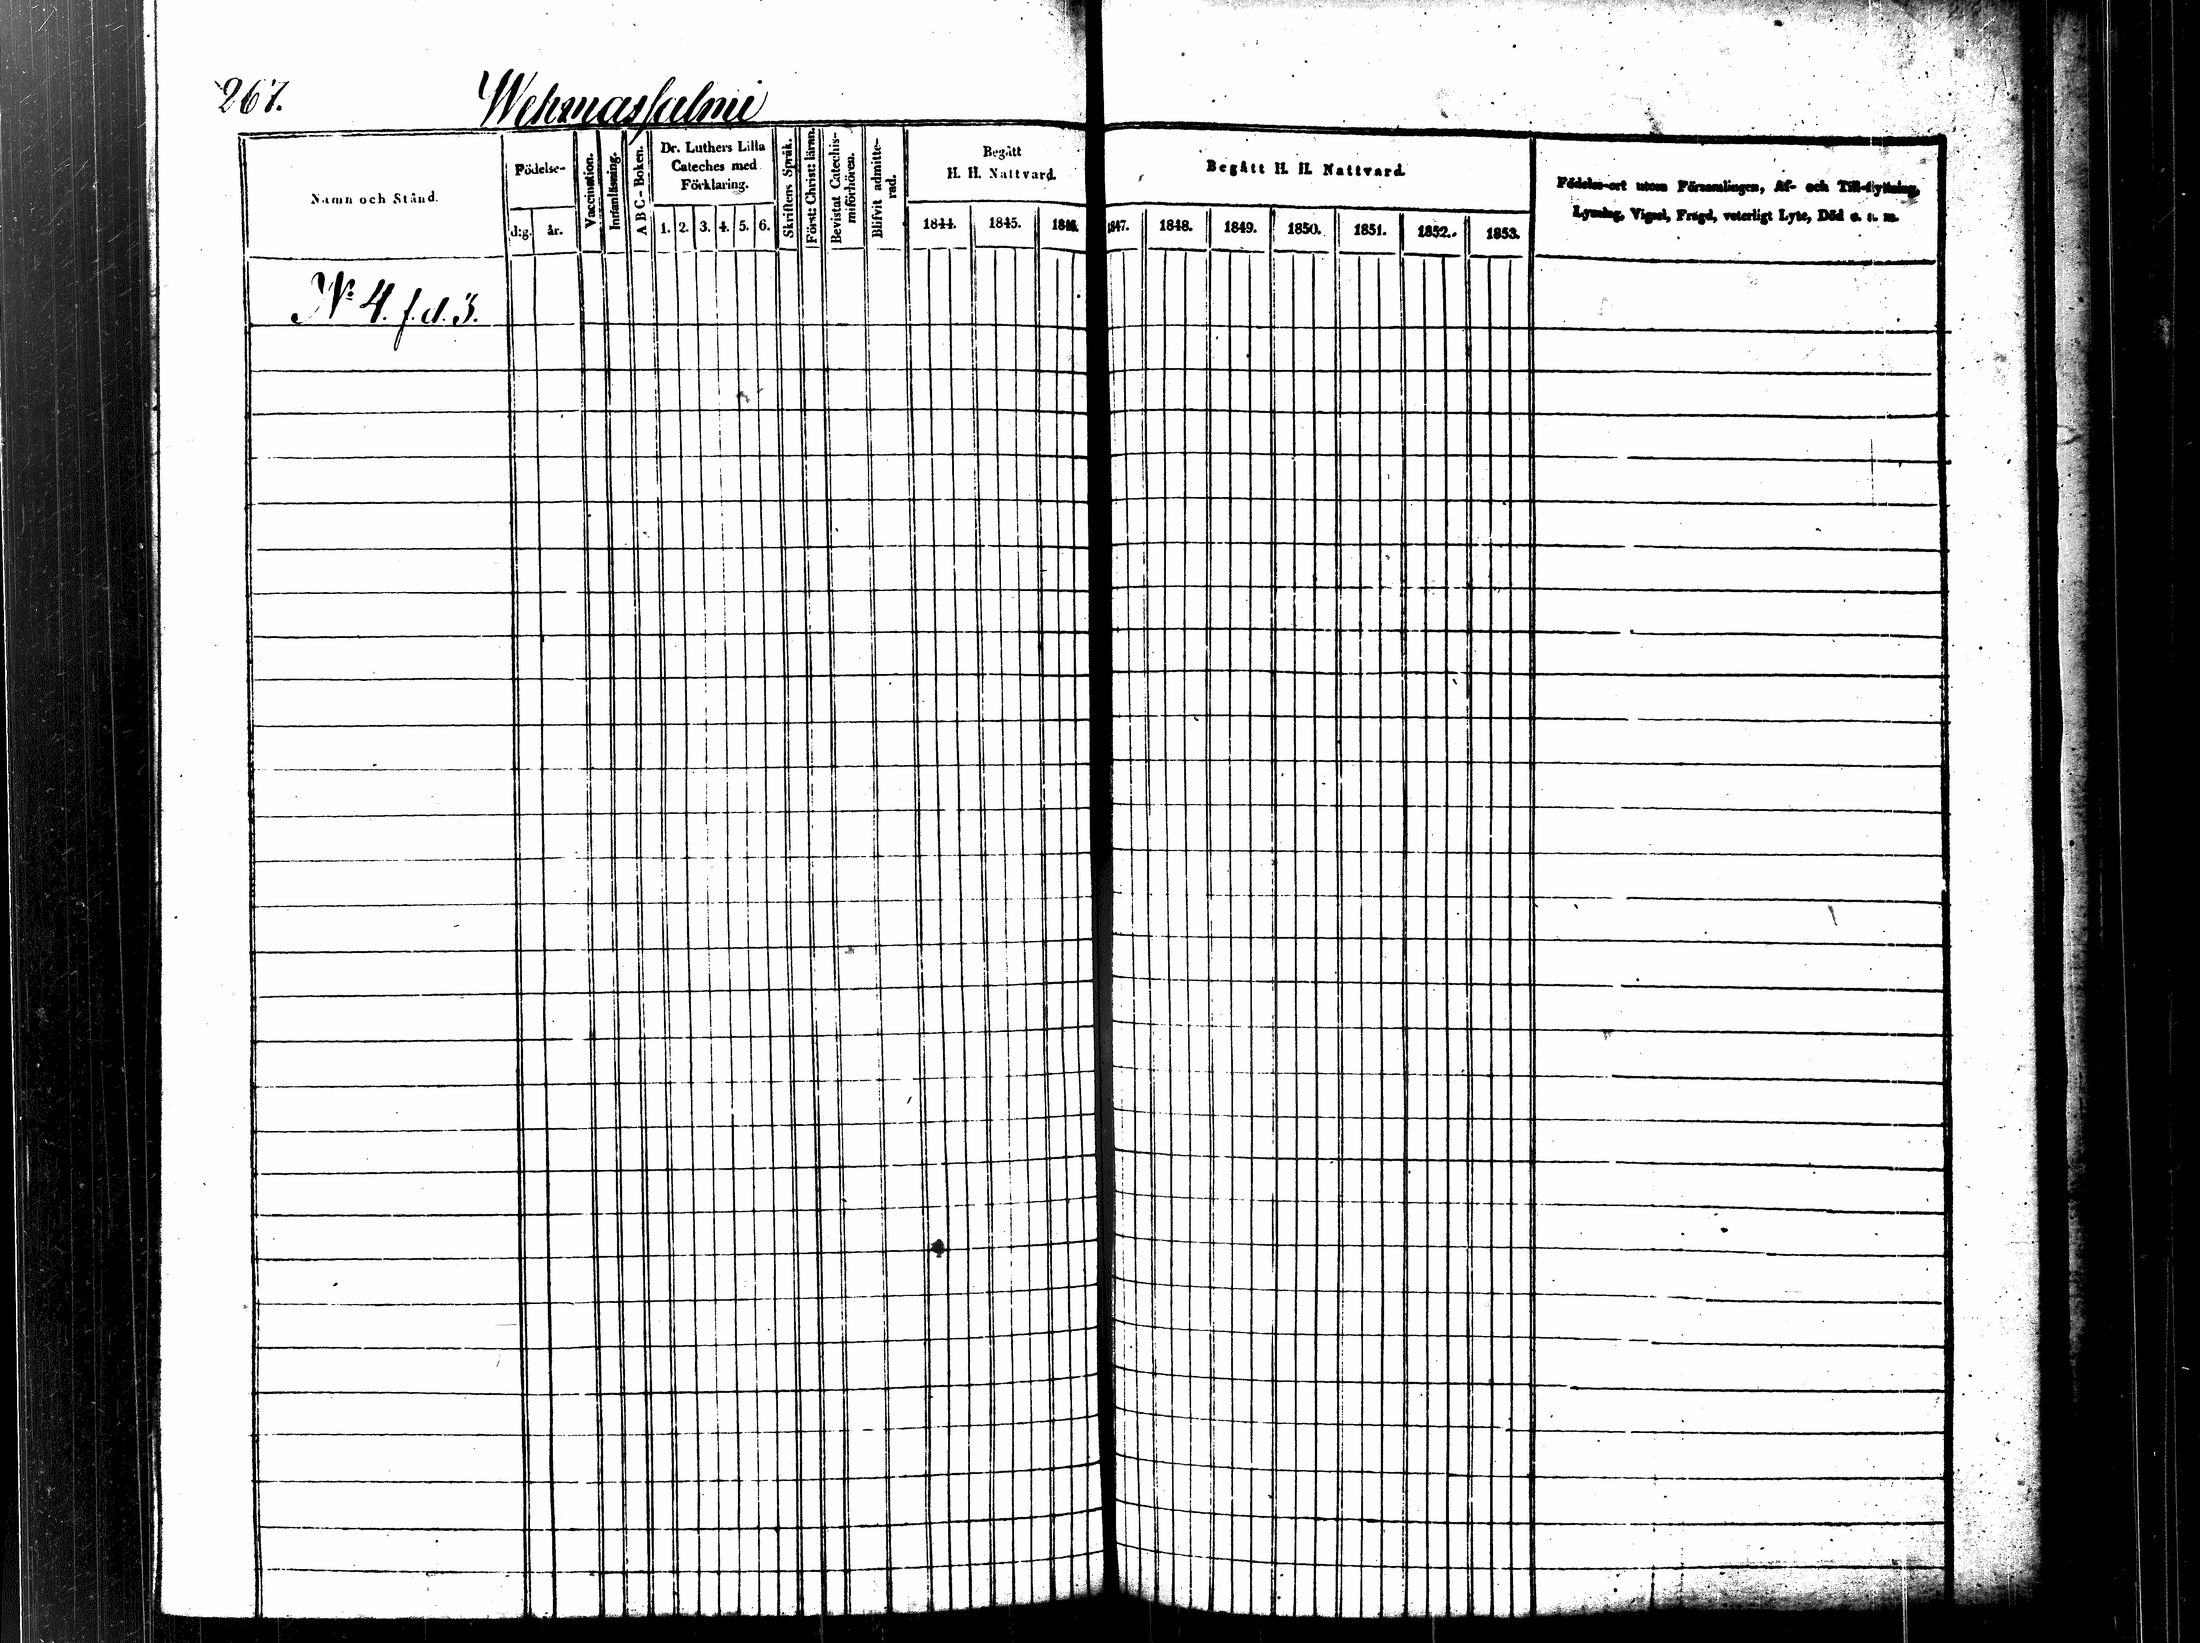 267.
Wehmassalmi
Namn och Stånd.
Födelse-
d:g.
år.
Vaccination.
Innanläsning.
A B C - Boken.
Dr. Luthers Lilla
Cateches med
Förklaring.
1. 2. 3. 4. 5. 6.
Skriftens Språk.
Först: Christ: läran.
Bevistat Catechis-
miförhören.
Blifvit admitte-
rad.
Begått
H. H. Nattvard.
1844. 1845. 1846.
Begått H. H. Nattvard.
1847. 1848. 1849. 1850. 1851. 1852. 1853.
Födelse-ort utom Församlingen, Af- och Till-flyttning,
Lysning, Vigsel, Frägd, veterligt Lyte, Död o. s. m.
No 4. f. d. 3.